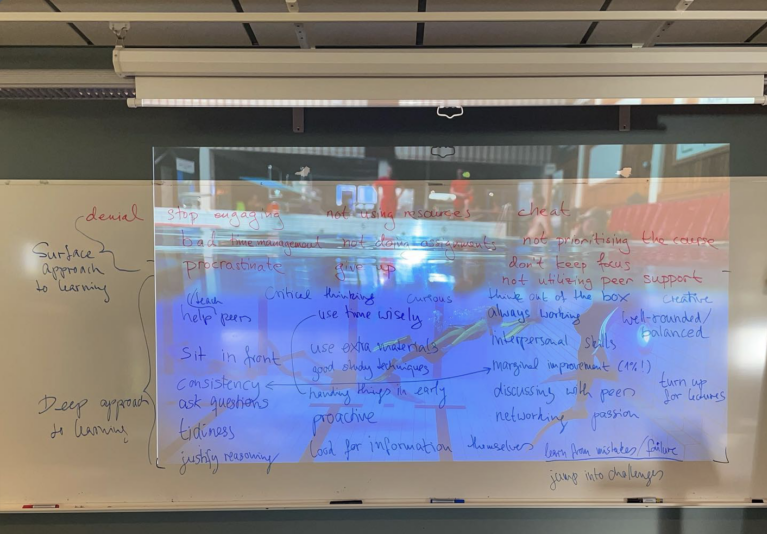 denial stop engaging not using resources cheat
bad time management not doing assignments not prioritising the course
Surface approach to learning
procrastinate give up don't keep focus
not utilising peer support
teach Critical thinking Curious think out of the box creative
help peers use time wisely always working well-rounded/
balanced
Sit in front use extra materials interpersonal skills
good study techniques marginal improvement (1%!)
consistency handing things in early discussing with peers turn up for lectures
Deep approach to learning
ask questions proactive networking passion
tidiness
justify reasoning look for information themselves learn from mistakes/failure
jump into challenges